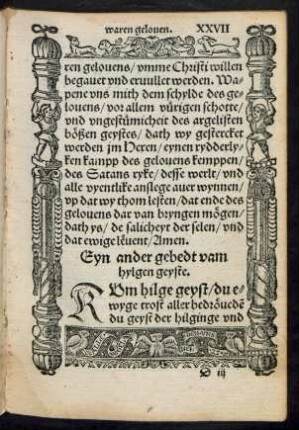 waren gelouen. XXVII
ren gelouens / vmme Christi willen
begauet vnd eruullet werden. Wa-
pene vns mith dem schylde des ge-
louens / vor allem vürigen schotte /
vnd vngestümicheit des argelisten
bößen geystes / dath wy gestercket
werden jm Heren / eynen rydderly-
ken kampp des gelouens kemppen /
des Satans ryke / desse werlt / vnd
alle vyentlike anslege auer wynnen /
vp dat wy thom lesten / dat ende des
gelouens dar van bryngen mögen /
dath ys / de salicheyt der selen / vnd
dat ewige leuent / Amen.
Eyn ander gebedt vam
hylgen geyste.
KVm hilge geyst / du e-
wyge trost aller bedröueden
du geyst der hilginge vnd
D iij